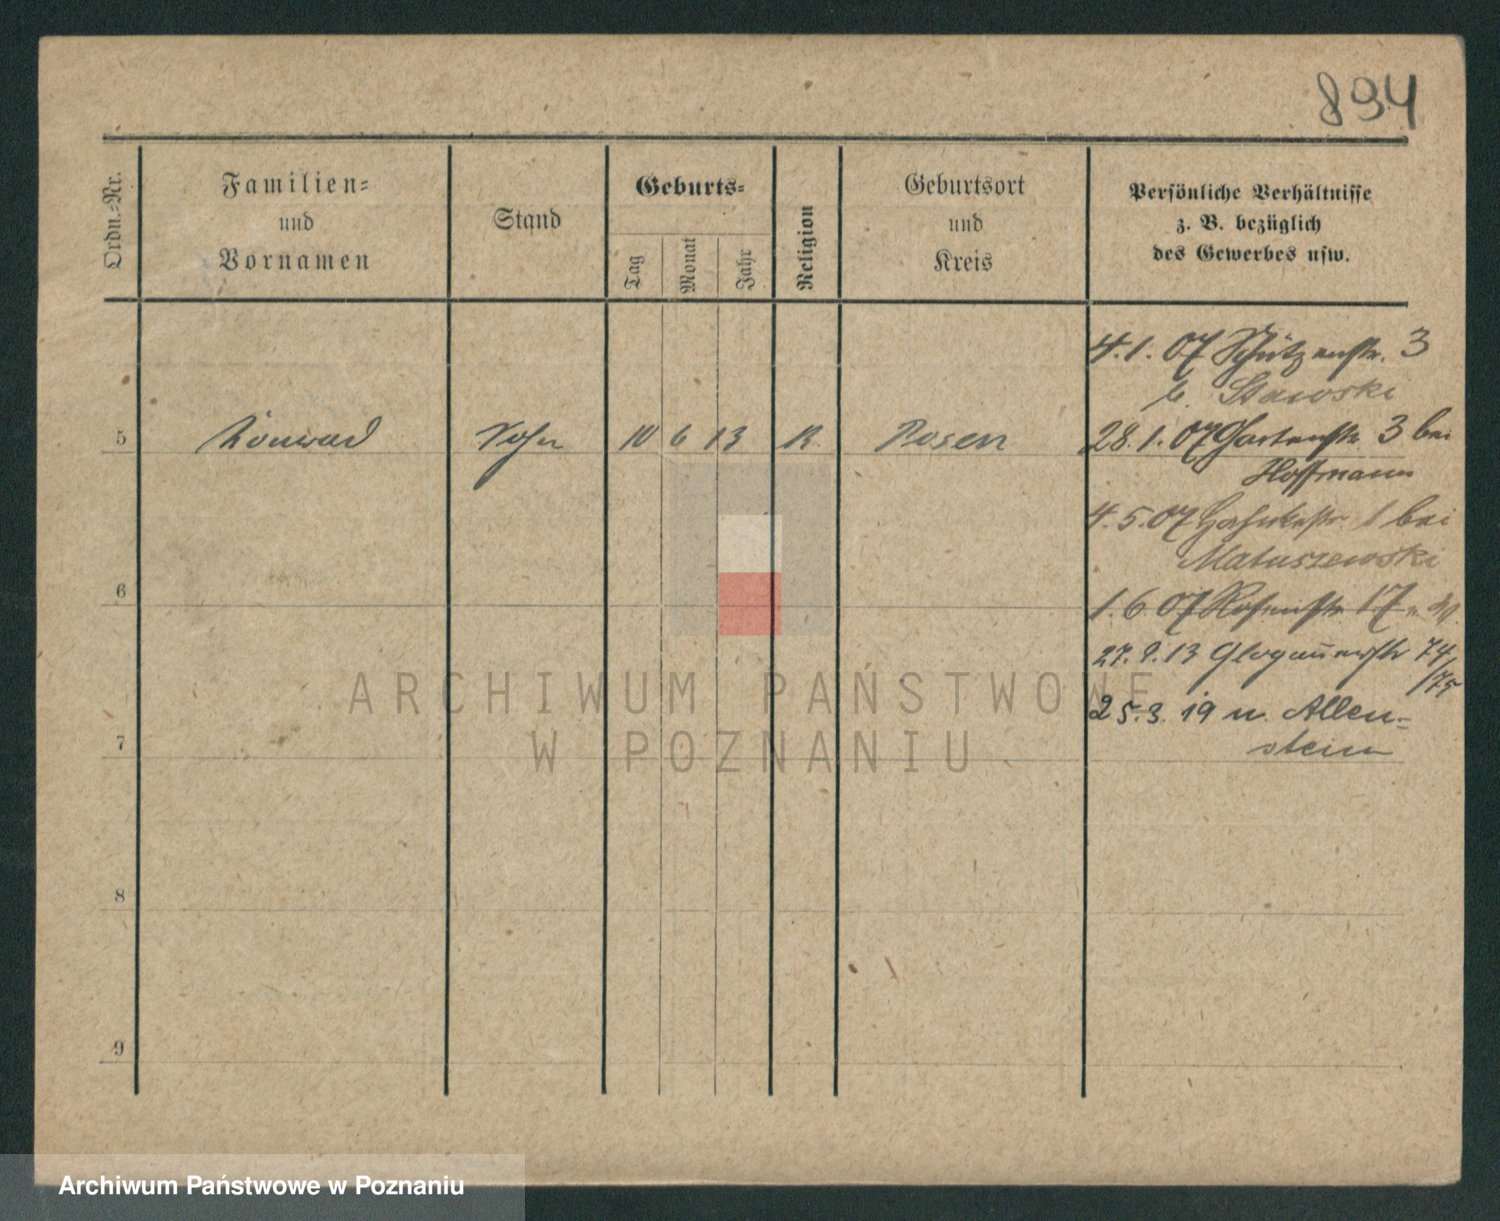 894
Ordn.-Nr.
Familien-
und
Vornamen
Stand
Geburts-
Tag
Monat
Jahr
Religion
Geburtsort
und
Kreis
Persönliche Verhältnisse
z. B. bezüglich
des Gewerbes usw.
4.1.07 Schützenstr. 3
b. Stawski
5 Konrad Sohn 10 6 13 K. Posen
28.1.07 Gartenstr. 3 bei
Hoffmann
4.5.07 1 bei
Matuszewski
6
1.6.07 17
27.9.13 Glogauerstr 74
/75
25.3.19 n. Allen=
stein
7
8
9
ARCHIWUM PAŃSTWOWE
W POZNANIU
Archiwum Państwowe w Poznaniu